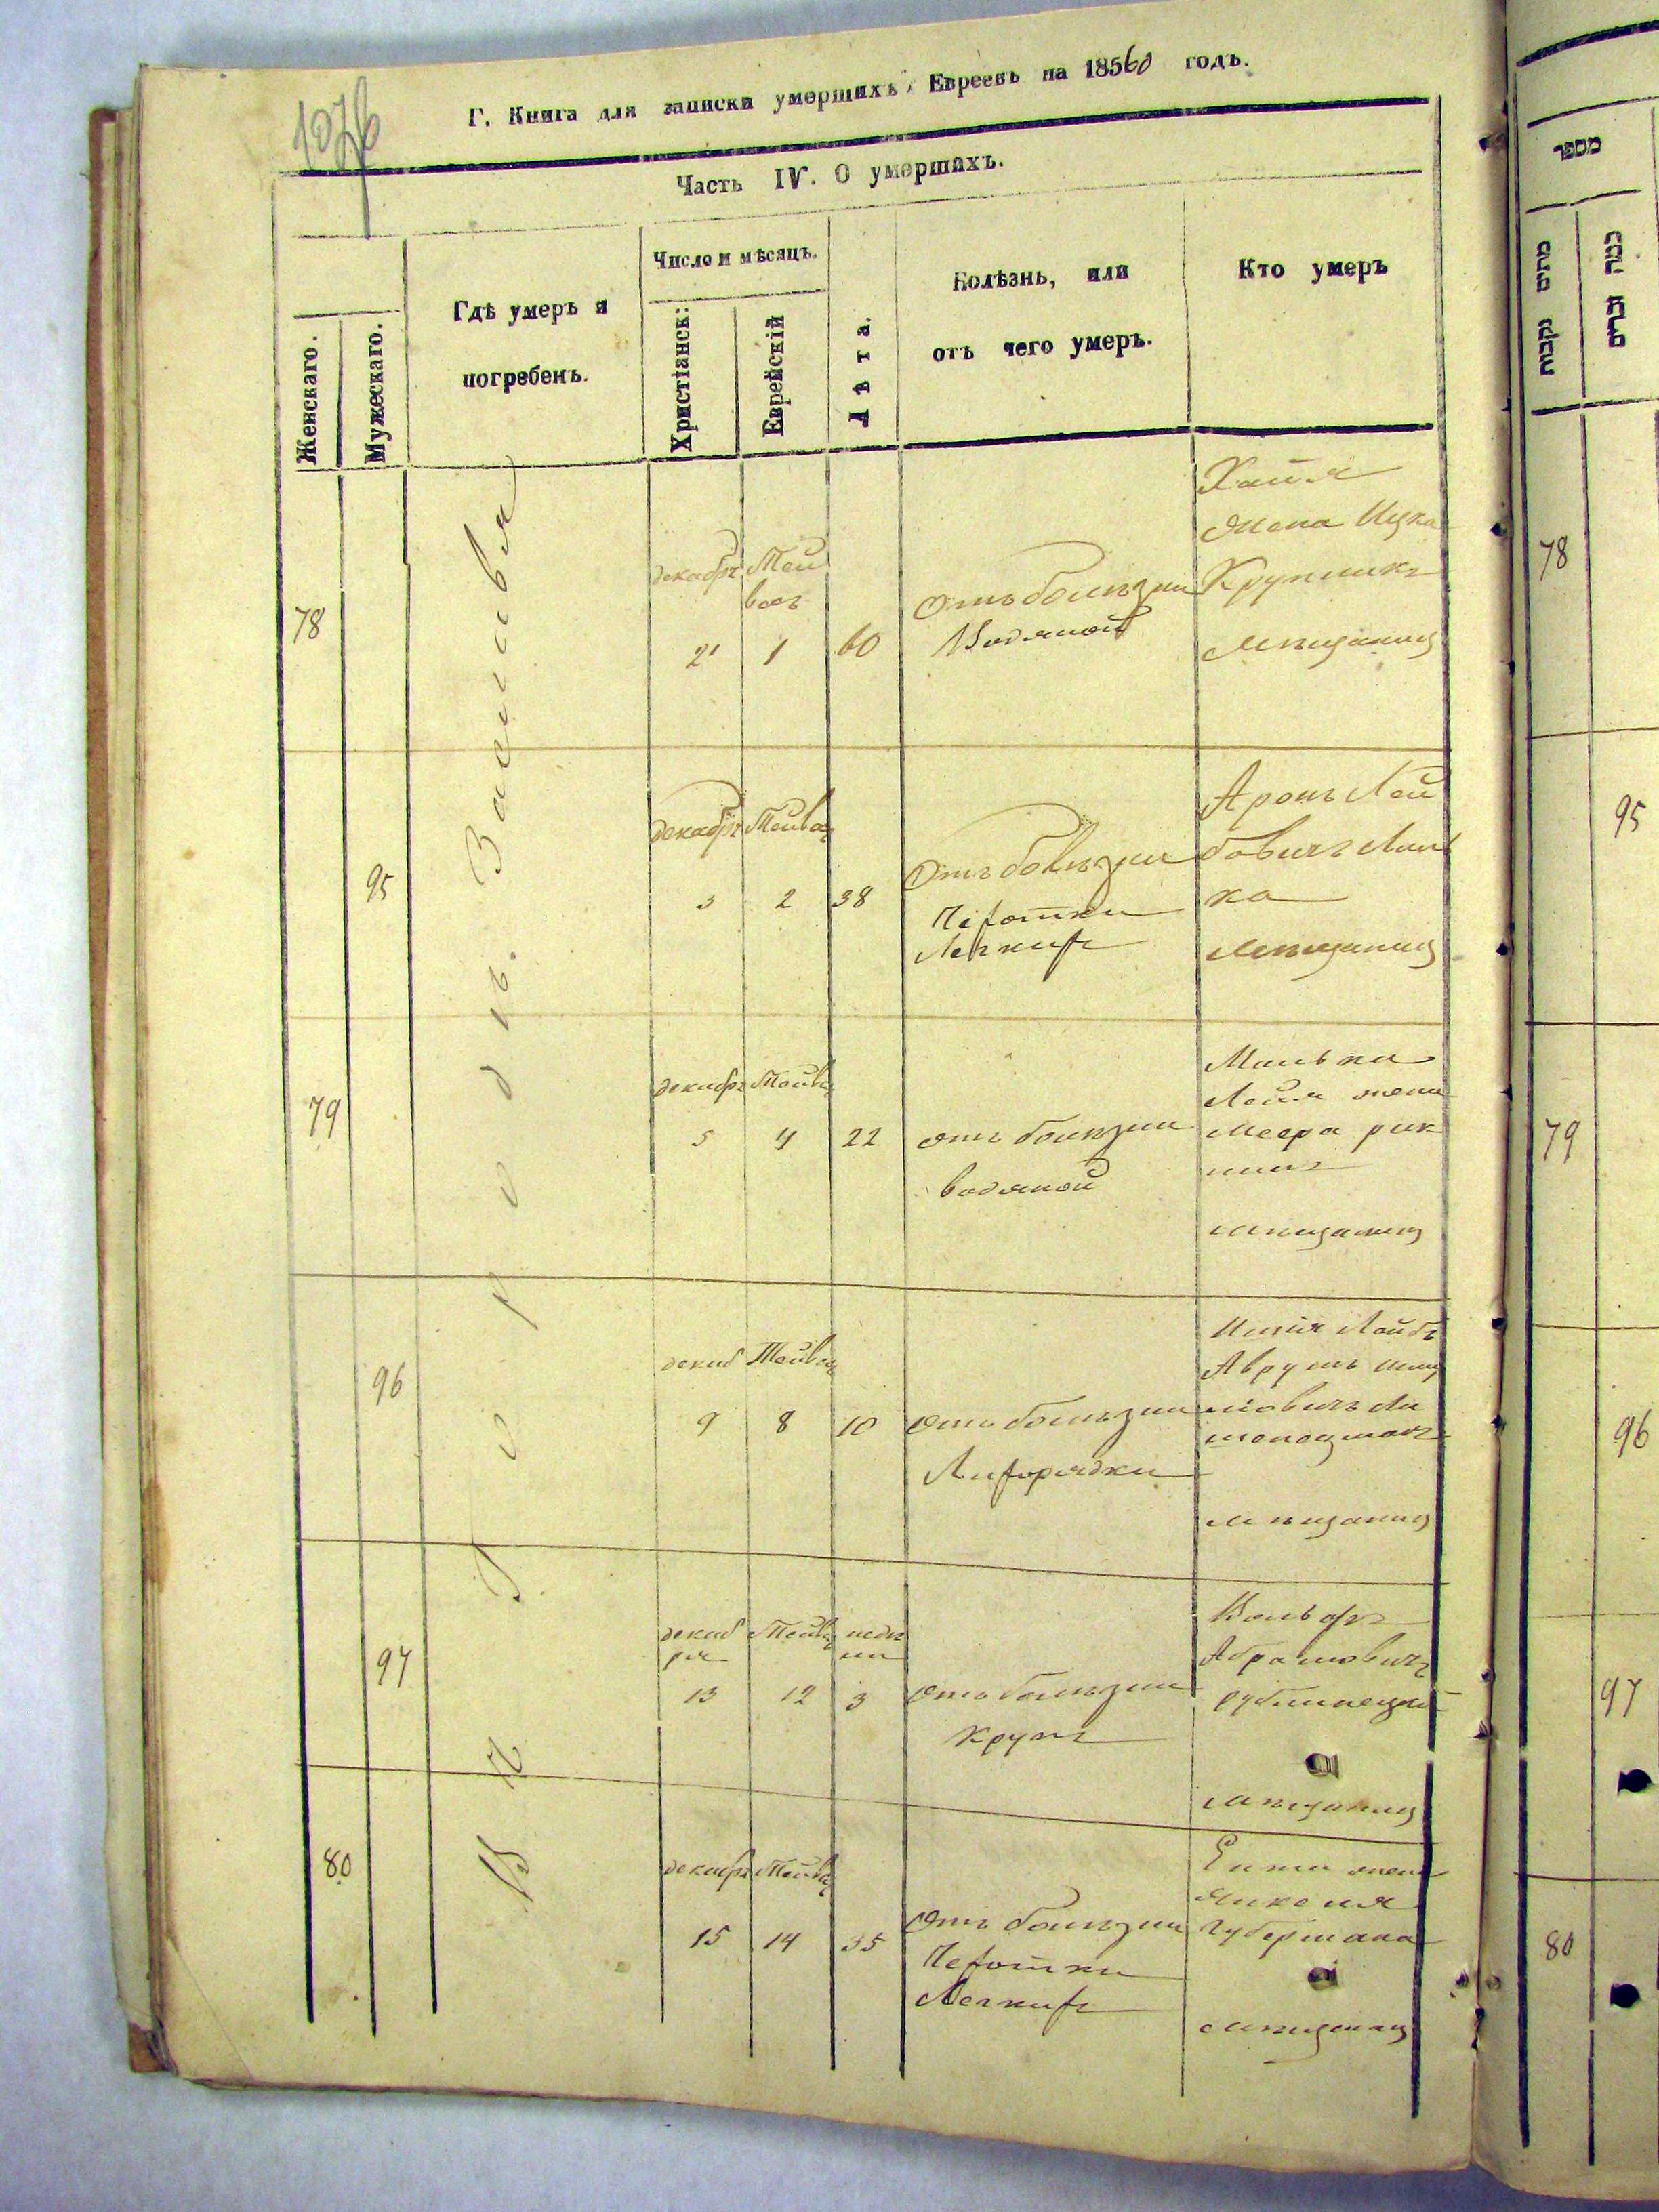 1076
Г. Книга для записки умершихъ Евреевъ на 18560 годъ.
Часть IV. О умершихъ.
Женскаго.
Мужескаго.
Гдѣ умеръ и
погребенъ.
Число и мѣсяцъ.
Христіанск:
Еврейскій
Лѣта.
Болѣзнь, или
отъ чего умеръ.
Кто умеръ
Въ Городѣ Василькѣ
78
декабр Тей
вос
2 1 60
Отъ болѣзни
Водяной
Хая
жена Ицка
Крупникъ
мѣщаниц
95
декабр Тейв
3 2 38
Отъ болѣзни
Чехотки
Легкихъ
Аронъ Лей
бовичъ
ка
мѣщаниц
79
декабр Тейв
5 4 22
отъ болѣзни
водяной
Малька
Лея жена
Меера
мѣщаниц
96
декаб Тейв
9 8 10
отъ болѣзни
Лихорядки
Лейбъ
Аврумъ
мѣщаниц
97
декаб Тейв недѣ
ря ли
13 12 3
отъ болѣзни
крупъ
Вольфъ
Абрамовичъ
мѣщаниц
80
декабр Тейв
15 14 35
Отъ болѣзни
Чехотки
Легкихъ
жена
Янкеля
Губермана
мѣщаниц
מספר
מתים נקבות
כמה זכרים
78
95
79
96
97
80